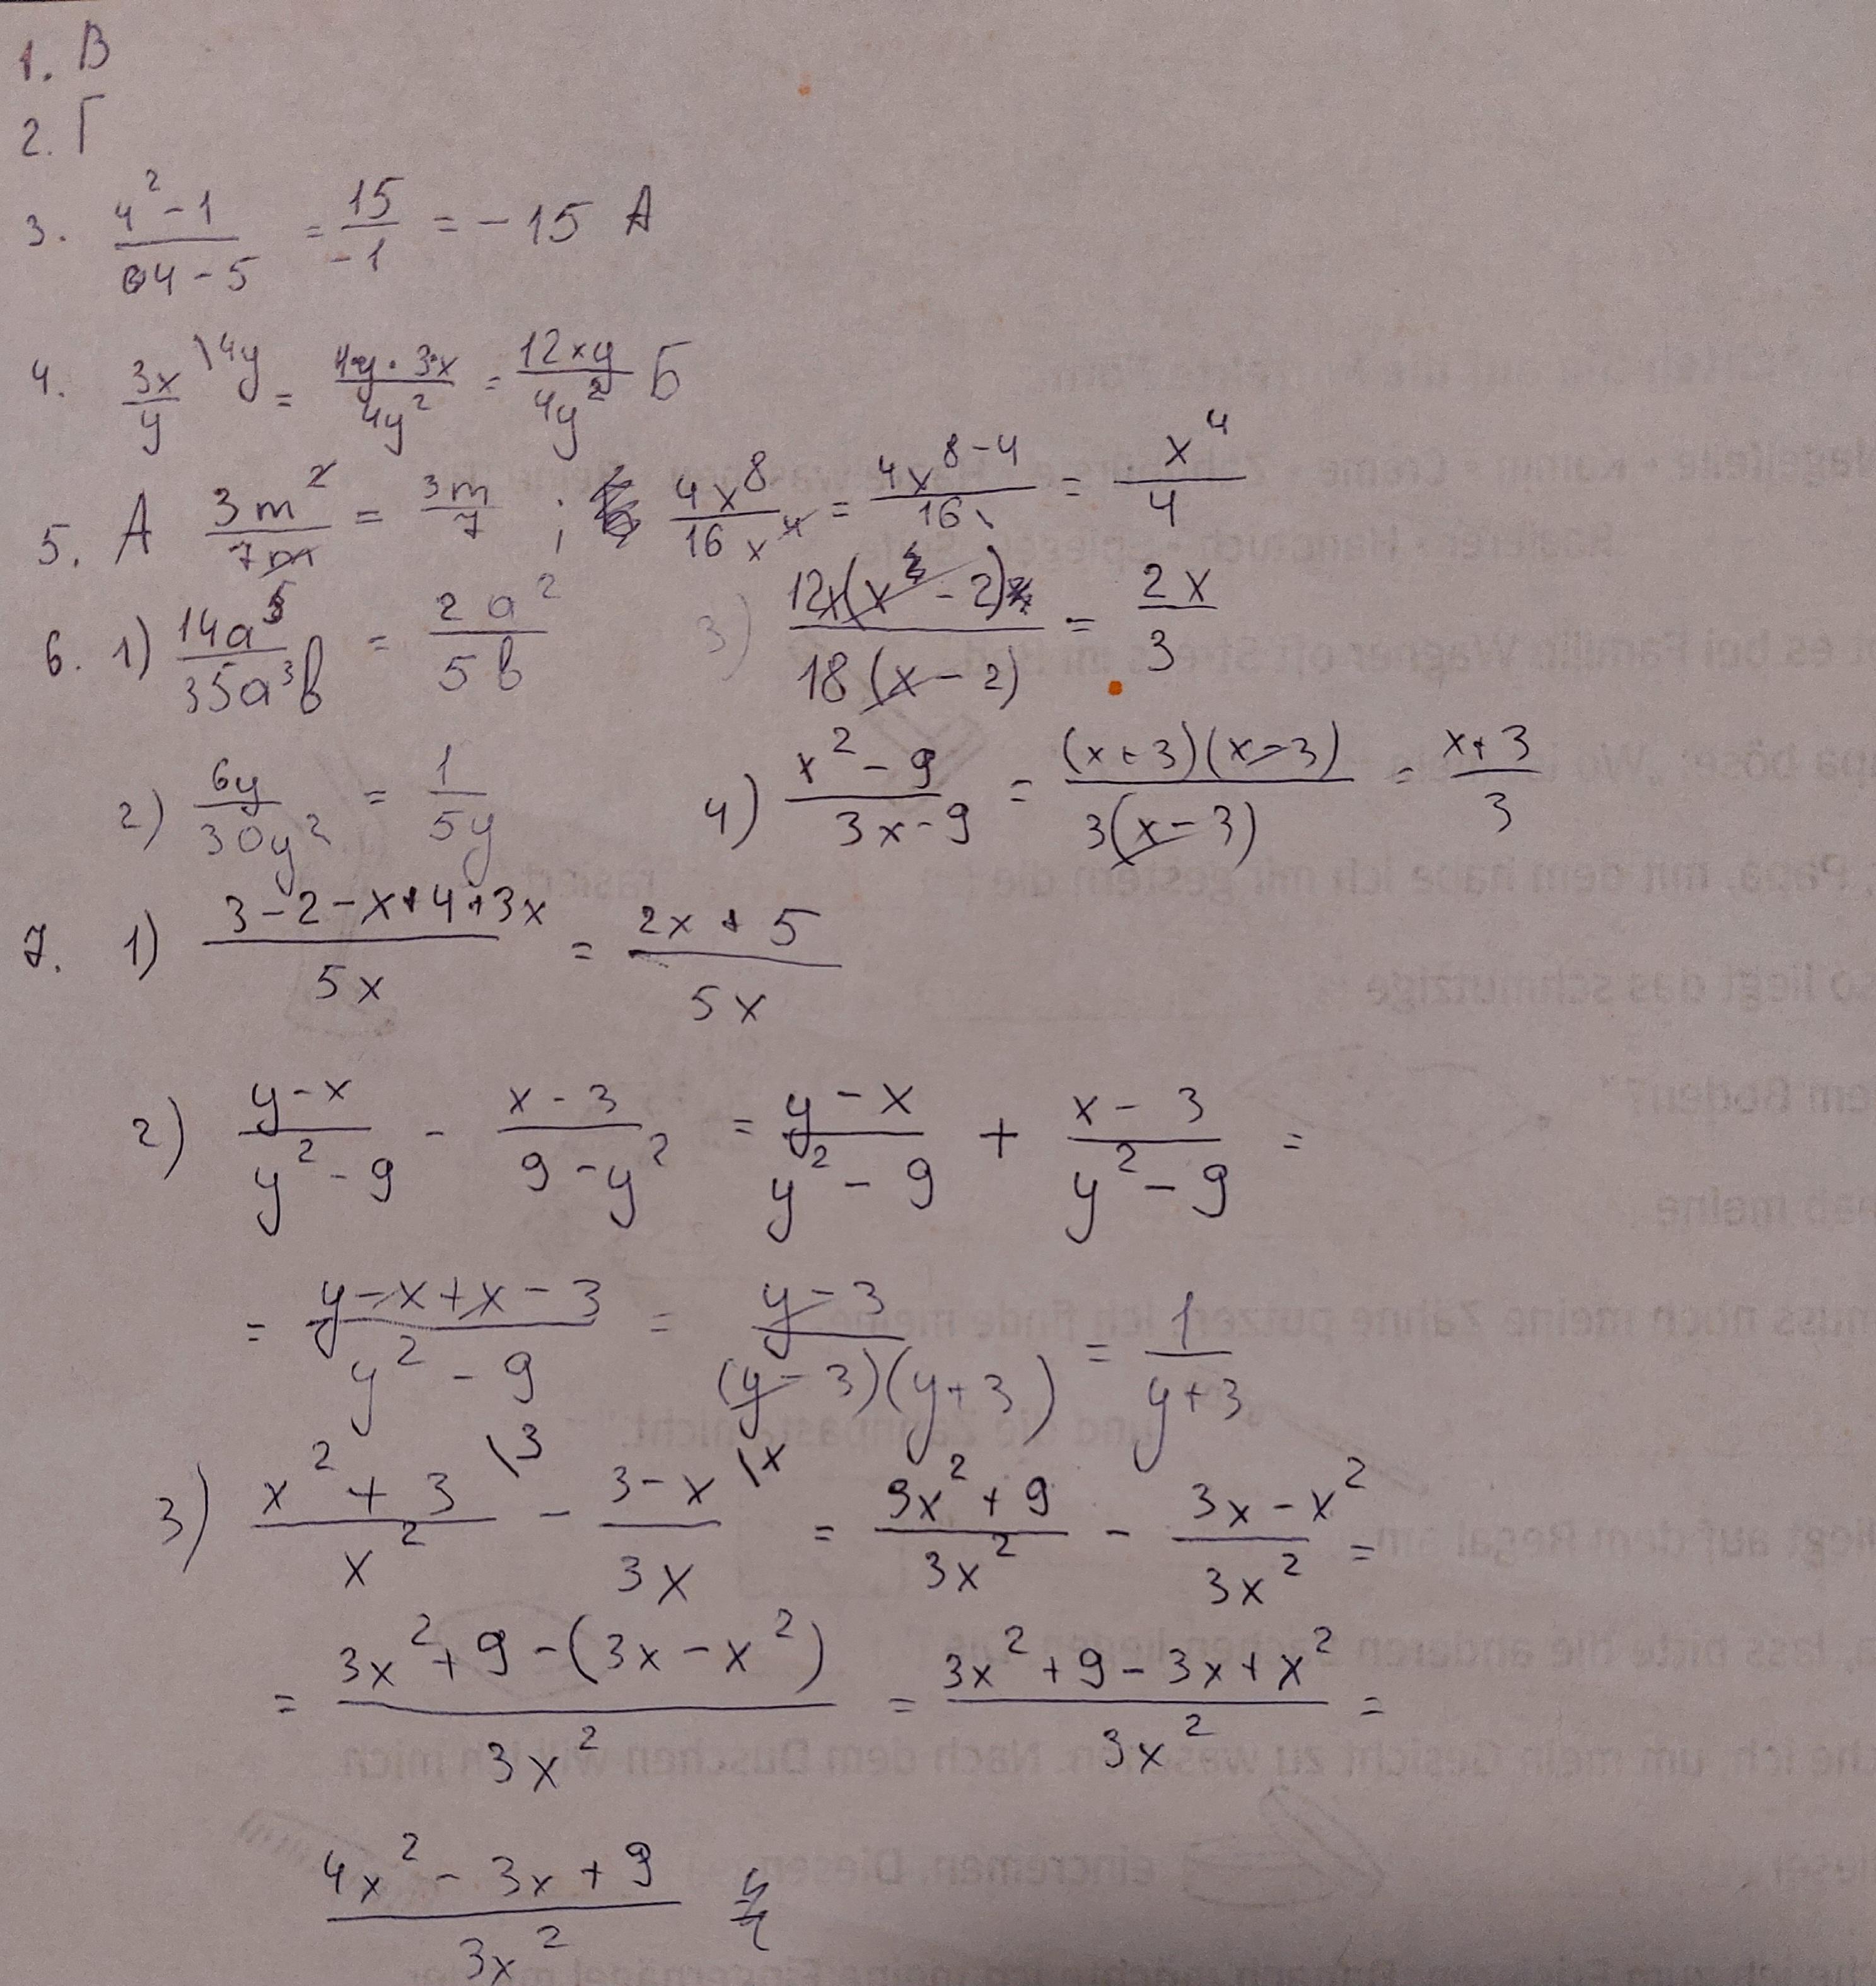 1. В
2. Г
3. (4² - 1)/(4 - 5) = 15/-1 = -15 А
4. 3x/y \4y = 4y · 3x/4y² = 12xy/4y² Б
5. А 3m²/7m = 3m/7 ; 4x⁸/16x⁴ = 4x⁸⁻⁴/16 = x⁴/4
6. 1) 14a⁵/35a³b = 2a²/5b 3) 12x(x - 2)/18(x - 2) = 2x/3
2) 6y/30y² = 1/5y 4) (x² - 9)/(3x - 9) = (x + 3)(x - 3)/3(x - 3) = (x + 3)/3
7. 1) (3 - 2 - x + 4 + 3x)/5x = (2x + 5)/5x
2) (y - x)/(y² - 9) - (x - 3)/(9 - y²) = (y - x)/(y² - 9) + (x - 3)/(y² - 9) =
= (y - x + x - 3)/(y² - 9) = (y - 3)/(y - 3)(y + 3) = 1/(y + 3)
3) (x² + 3)/x² \3 - (3 - x)/3x \x = (3x² + 9)/3x² - (3x - x²)/3x² =
= (3x² + 9 - (3x - x²))/3x² = (3x² + 9 - 3x + x²)/3x² =
(4x² - 3x + 9)/3x²